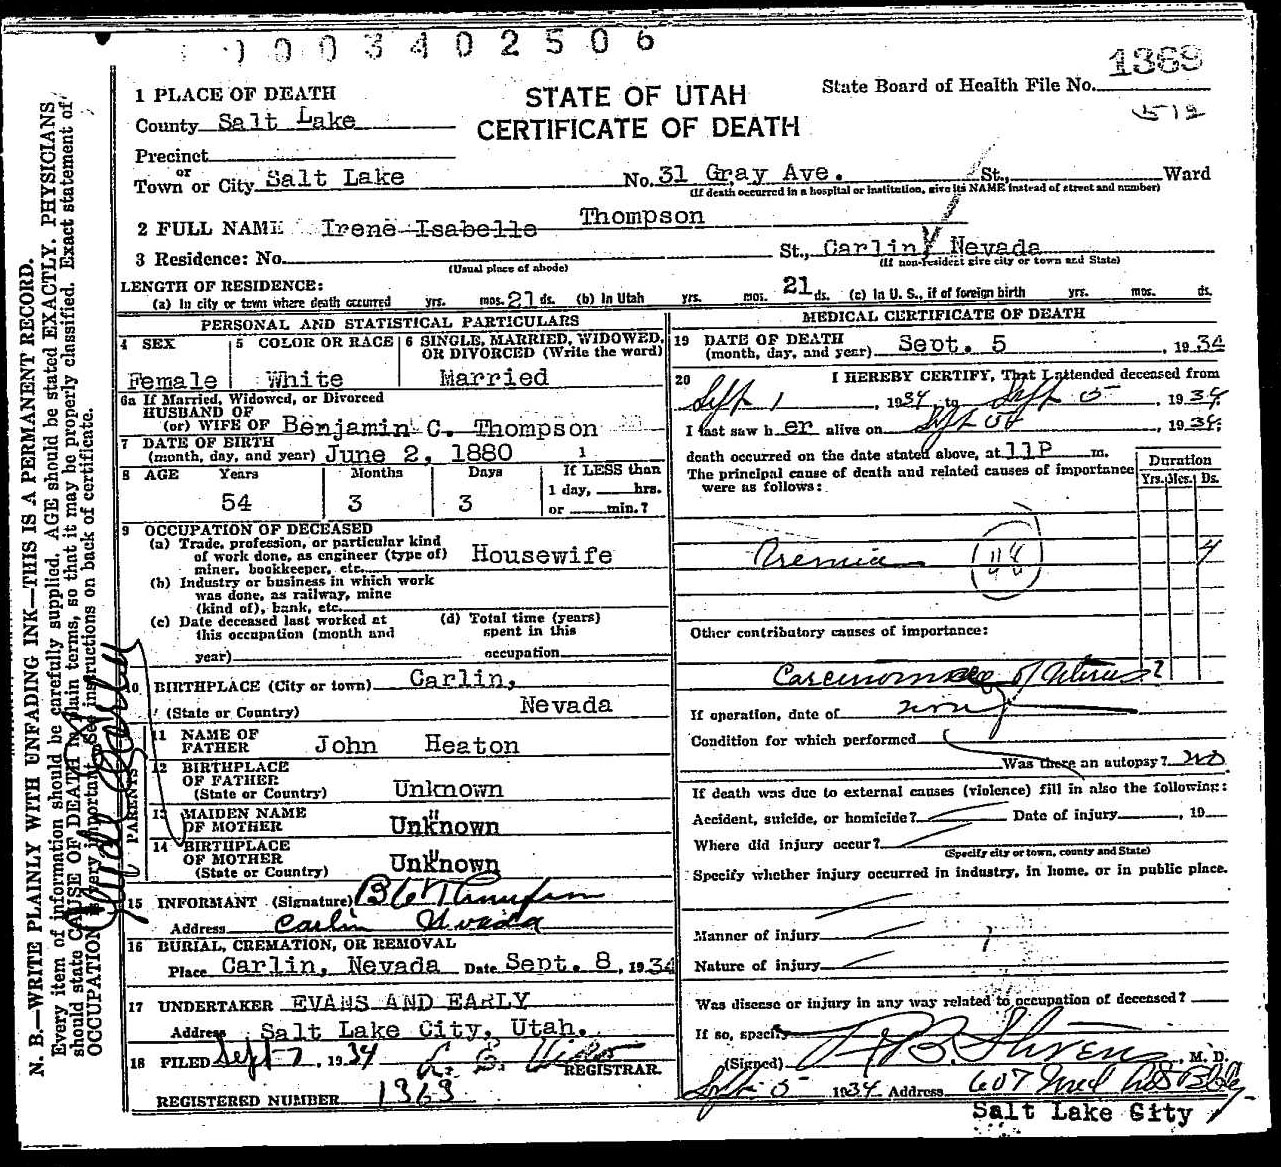 1003402506
1369
State Board of Health File No.
STATE OF UTAH
CERTIFICATE OF DEATH
1 PLACE OF DEATH
County Salt Lake
Precinct
or
Town or City Salt Lake No. 31 Gray Ave. St., Ward
(If death occurred in a hospital or institution, give its NAME instead of street and number)
2 FULL NAME Irene Isabelle Thompson
3 Residence: No. St., Carlin, Nevada
(Usual place of abode) (If non-resident give city or town and State)
LENGTH OF RESIDENCE:
(a) In city or town where death occurred yrs. mos. 21 ds. (b) In Utah yrs. mos. 21 ds. (c) In U. S., if of foreign birth yrs. mos. ds.
PERSONAL AND STATISTICAL PARTICULARS
4 SEX 5 COLOR OR RACE 6 SINGLE, MARRIED, WIDOWED, OR DIVORCED (Write the word)
Female White Married
6a If Married, Widowed, or Divorced
HUSBAND OF
(or) WIFE OF Benjamin C. Thompson
7 DATE OF BIRTH
(month, day, and year) June 2, 1880
8 AGE Years Months Days If LESS than
1 day, hrs.
54 3 3 or min.?
9 OCCUPATION OF DECEASED
(a) Trade, profession, or particular kind
of work done, as engineer (type of)
miner, bookkeeper, etc. Housewife
(b) Industry or business in which work
was done, as railway, mine
(kind of), bank, etc.
(c) Date deceased last worked at
this occupation (month and
year)
(d) Total time (years)
spent in this
occupation
10 BIRTHPLACE (City or town) Carlin,
(State or Country) Nevada
PARENTS
11 NAME OF
FATHER John Heaton
12 BIRTHPLACE
OF FATHER
(State or Country) Unknown
13 MAIDEN NAME
OF MOTHER Unknown
14 BIRTHPLACE
OF MOTHER
(State or Country) Unknown
15 INFORMANT (Signature) B C Thompson
Address Carlin Nevada
16 BURIAL, CREMATION, OR REMOVAL
Place Carlin, Nevada Date Sept. 8, 1934
17 UNDERTAKER EVANS AND EARLY
Address Salt Lake City, Utah.
18 FILED Sept 7, 1934
REGISTRAR.
REGISTERED NUMBER 1369
MEDICAL CERTIFICATE OF DEATH
19 DATE OF DEATH
(month, day, and year) Sept. 5, 1934
20 I HEREBY CERTIFY, That I attended deceased from
Sept 1, 1934, to Sept 5, 1934
I last saw h er alive on Sept 5, 1934;
death occurred on the date stated above, at 11P m.
The principal cause of death and related causes of importance
were as follows:
Duration
Yrs. Mos. Ds.
Uremia 4
Other contributory causes of importance:
Carcinoma of Uterus ?
If operation, date of none
Condition for which performed
Was there an autopsy? no
If death was due to external causes (violence) fill in also the following:
Accident, suicide, or homicide? Date of injury , 19
Where did injury occur?
(Specify city or town, county and State)
Specify whether injury occurred in industry, in home, or in public place.
Manner of injury
Nature of injury
Was disease or injury in any way related to occupation of deceased?
If so, specify
(Signed) , M. D.
Sept 5 1934 Address 607 Med Arts Bldg
Salt Lake City
N. B.—WRITE PLAINLY WITH UNFADING INK—THIS IS A PERMANENT RECORD.
Every item of information should be carefully supplied. AGE should be stated EXACTLY. PHYSICIANS
should state CAUSE OF DEATH in plain terms, so that it may be properly classified. Exact statement of
OCCUPATION is very important. See instructions on back of certificate.